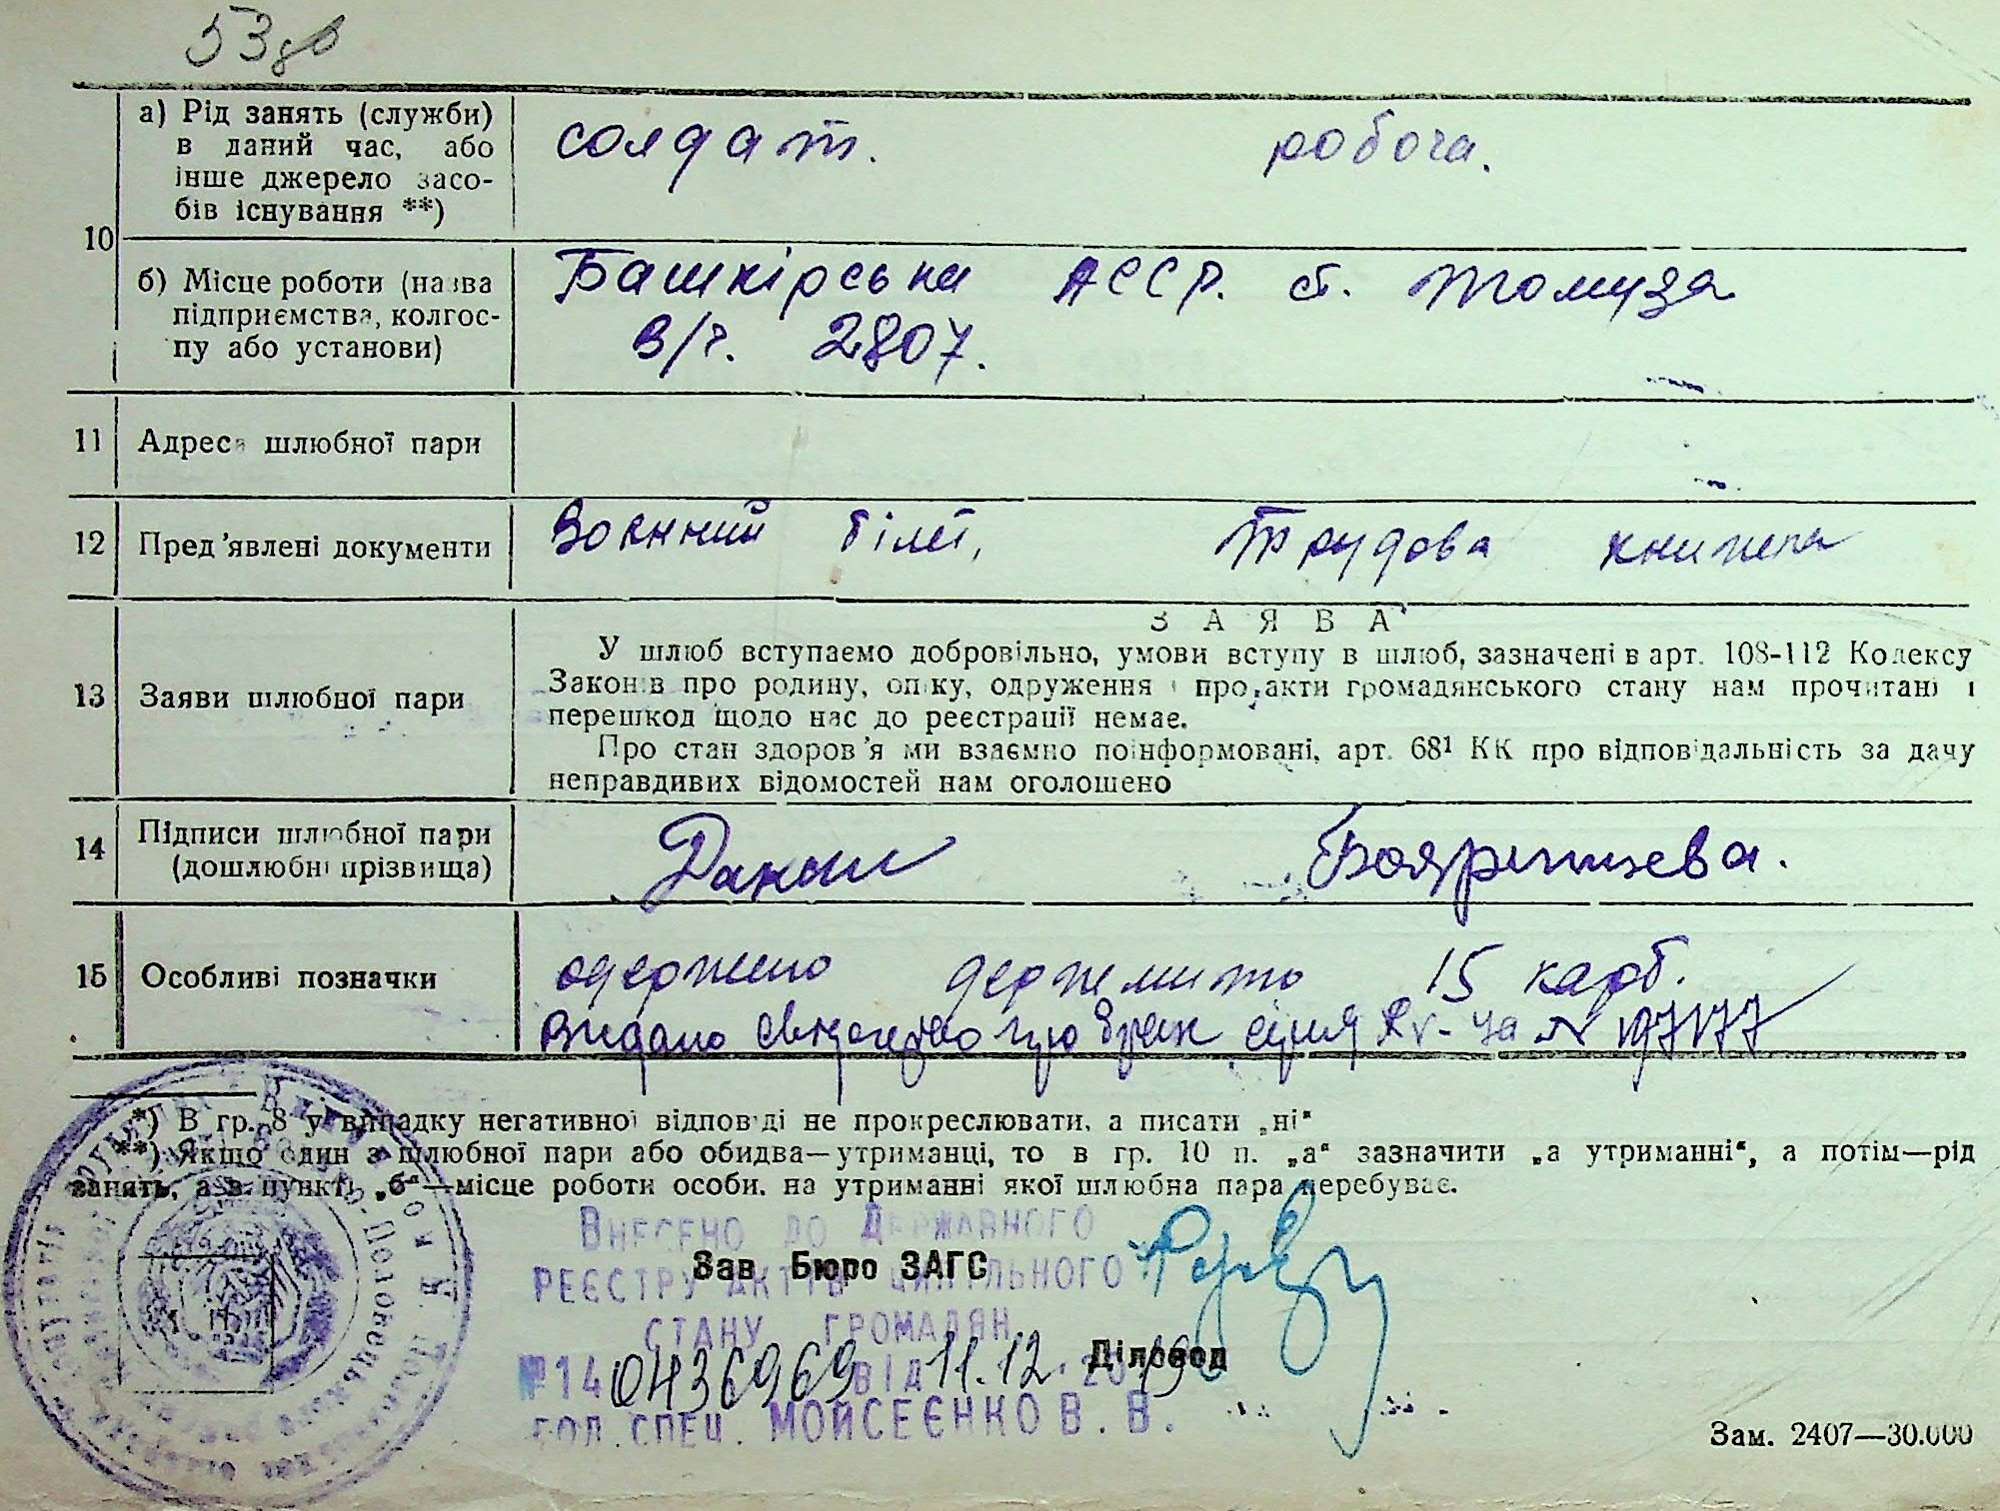 53
10
а) Рід занять (служби)
в даний час, або
інше джерело засо-
бів існування **)
солдат. робоча.
б) Місце роботи (назва
підприємства, колгос-
пу або установи)
Башкірська АССР. ст.
в/ч. 2807.
11 Адреса шлюбної пари
12 Пред'явлені документи
Военний білет, Трудова книжка
13 Заяви шлюбної пари
ЗАЯВА
У шлюб вступаємо добровільно, умови вступу в шлюб, зазначені в арт. 108-112 Кодексу
Законів про родину, опіку, одруження і про акти громадянського стану нам прочитані і
перешкод щодо нас до реєстрації немає.
Про стан здоров'я ми взаємно поінформовані, арт. 68¹ КК про відповідальність за дачу
неправдивих відомостей нам оголошено
14 Підписи шлюбної пари
(дошлюбні прізвища)
15 Особливі позначки
одержано держмито 15 карб.
Видано свидетство про брак серия № 197177
*) В гр. 8 у випадку негативної відповіді не прокреслювати, а писати „ні“
**) Якщо один з шлюбної пари або обидва—утриманці, то в гр. 10 п. „а“ зазначити „а утриманні“, а потім—рід
занять, а в пункті „б“—місце роботи особи, на утриманні якої шлюбна пара перебуває.
Внесено до Державного
Зав. Бюро ЗАГС
реєстру актів цивільного
стану громадян
Діловод
№14 0436969 від 11.12.2019
гол. спец. Мойсеєнко В. В.
Зам. 2407—30.000